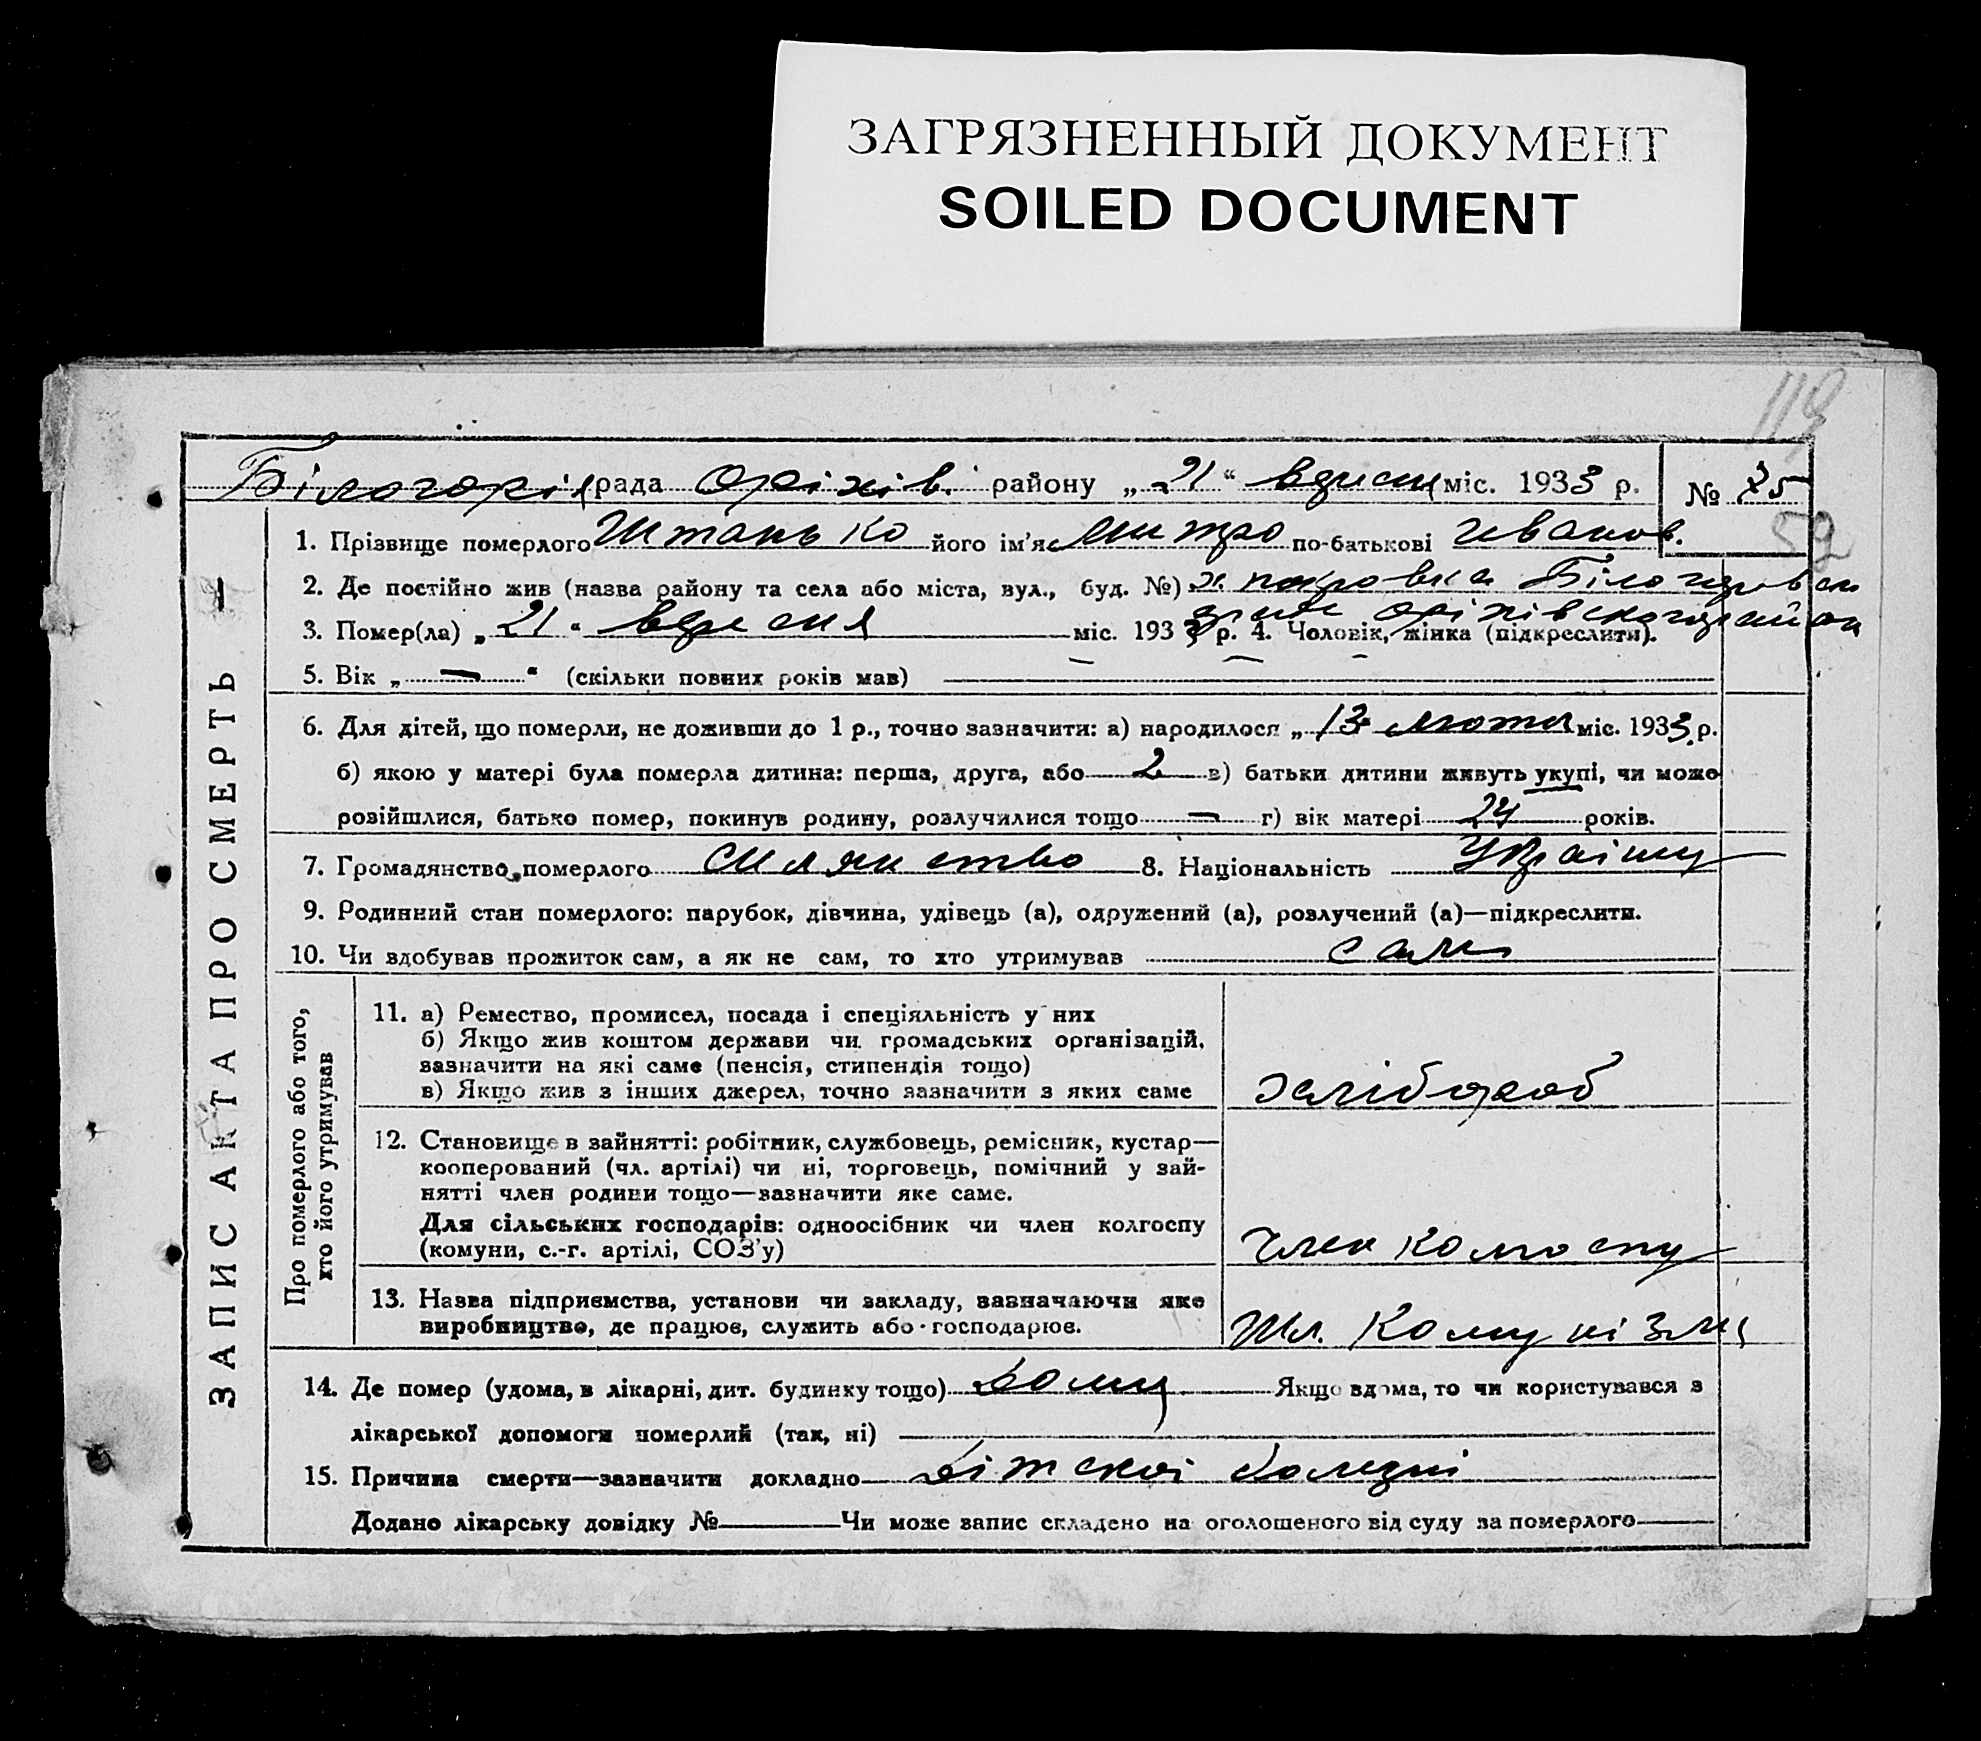 ЗАГРЯЗНЕННЫЙ ДОКУМЕНТ
SOILED DOCUMENT
119
Білогорі рада Оріхів. району „ 21 “ вересня міс. 1933 р.
№ 25
52
ЗАПИС АКТА ПРО СМЕРТЬ
1. Прізвище померлого Штанько його ім'я Митро по-батькові Иванов.
2. Де постійно жив (назва району та села або міста, вул., буд. №) х. покровка Білогорівськ
Оріхівського району
3. Помер(ла) „ 21 “ вересня міс. 1933 р. 4. Чоловік, жінка (підкреслити).
5. Вік „ — “ (скільки повних років мав)
6. Для дітей, що померли, не доживши до 1 р., точно зазначити: а) народилося „ 13 лютня міс. 1933 р.
б) якою у матері була померла дитина: перша, друга, або 2 в) батьки дитини живуть укупі, чи може
розійшлися, батько помер, покинув родину, розлучилися тощо — г) вік матері 24 років.
7. Громадянство померлого 8. Національність Україну
9. Родинний стан померлого: парубок, дівчина, удівець (а), одружений (а), розлучений (а)—підкреслити.
10. Чи здобував прожиток сам, а як не сам, то хто утримував сам
Про померлого або того,
хто його утримував
11. а) Ремество, промисел, посада і спеціяльність у них
б) Якщо жив коштом держави чи громадських організацій,
зазначити на які саме (пенсія, стипендія тощо)
в) Якщо жив з інших джерел, точно зазначити з яких саме
хлібороб
12. Становище в зайнятті: робітник, службовець, ремісник, кустар—
кооперований (чл. артілі) чи ні, торговець, помічний у зай-
нятті член родини тощо—зазначити яке саме.
Для сільських господарів: одноосібник чи член колгоспу
(комуни, с.-г. артілі, СОЗ'у)
член колгоспу
13. Назва підприємства, установи чи закладу, зазначаючи яке
виробництво, де працює, служить або господарює.
Шл. Комунізму
14. Де помер (удома, в лікарні, дит. будинку тощо) дому Якщо вдома, то чи користувався з
лікарської допомоги померлий (так, ні)
15. Причина смерти—зазначити докладно дітскої болезні
Додано лікарську довідку № Чи може запис складено на оголошеного від суду за померлого